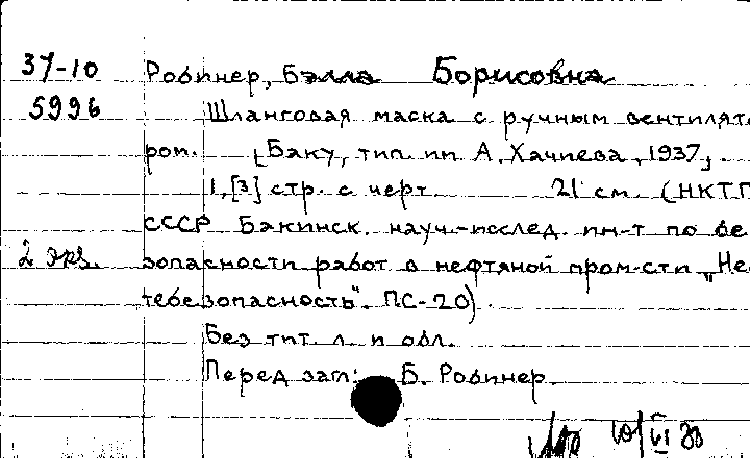 37-10 Робинер, Бэлла Борисовна
5996 Шланговая маска с ручным вентилято
ром. [Баку, тип. им А. Хачиева, 1937].
1, [3] стр. с черт. 21 см. (НКТП
СССР Бакинск. науч.-исслед. ин-т по бе
2 экз. зопасности работ в нефтяной пром-сти „Не
тебезопасность". ПС-20).
Без тит. л. и обл.
Перед загл: Б. Робинер.
10/VI 80